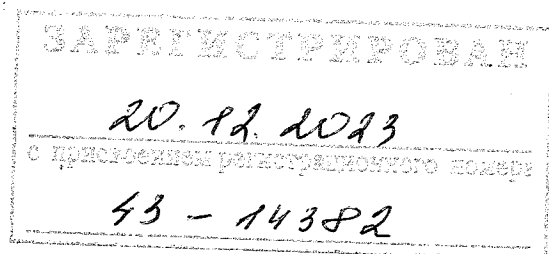 ЗАРЕГИСТРИРОВАН
20.12.2023
с присвоением регистрационного номера
43 - 14382